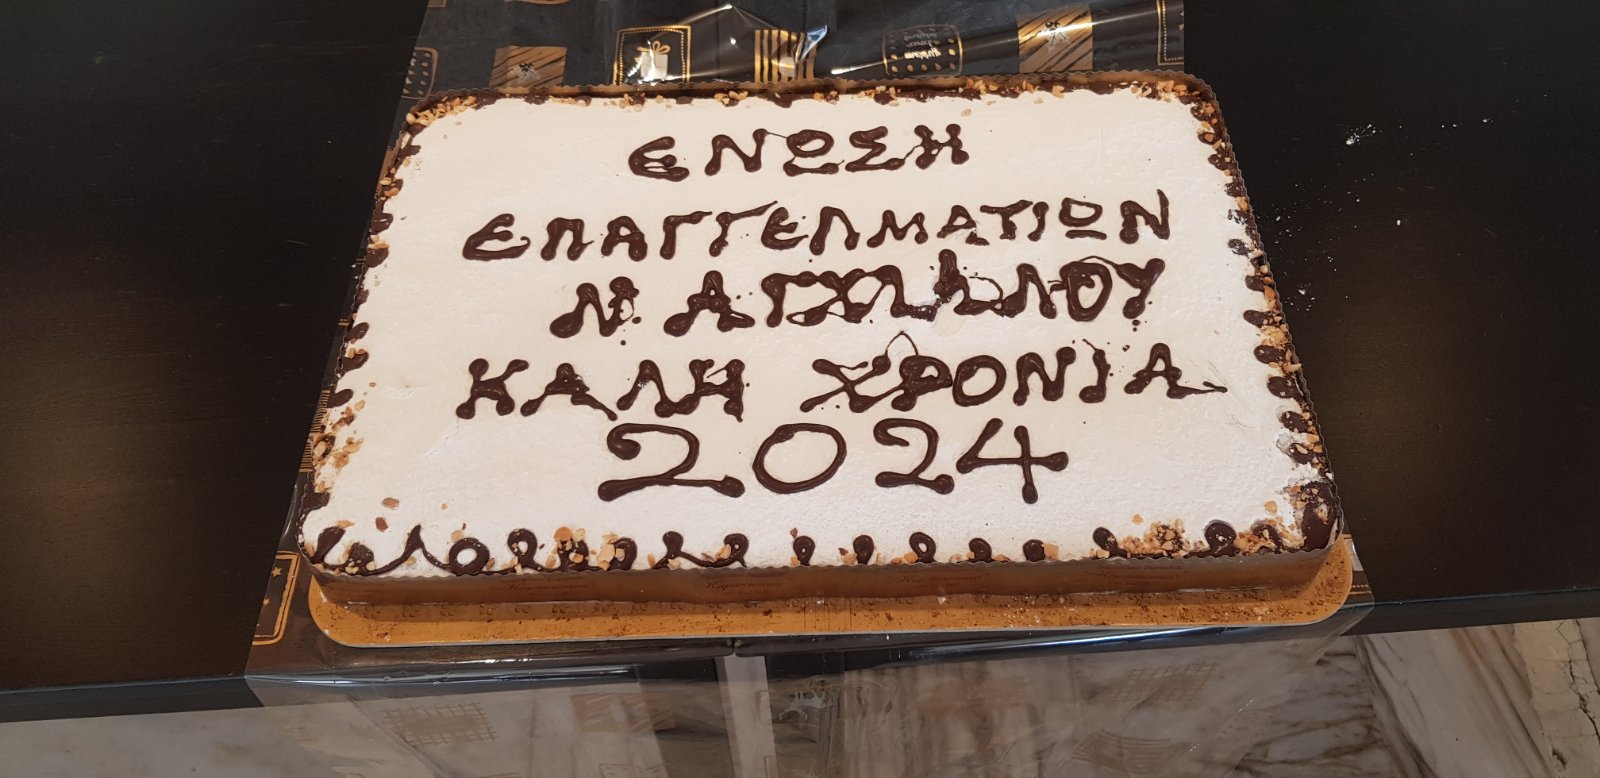 ΕΝΩΣΗ
ΕΠΑΓΓΕΛΜΑΤΙΩΝ
Ν. ΑΓΧΙΑΛΟΥ
ΚΑΛΗ ΧΡΟΝΙΑ
2024